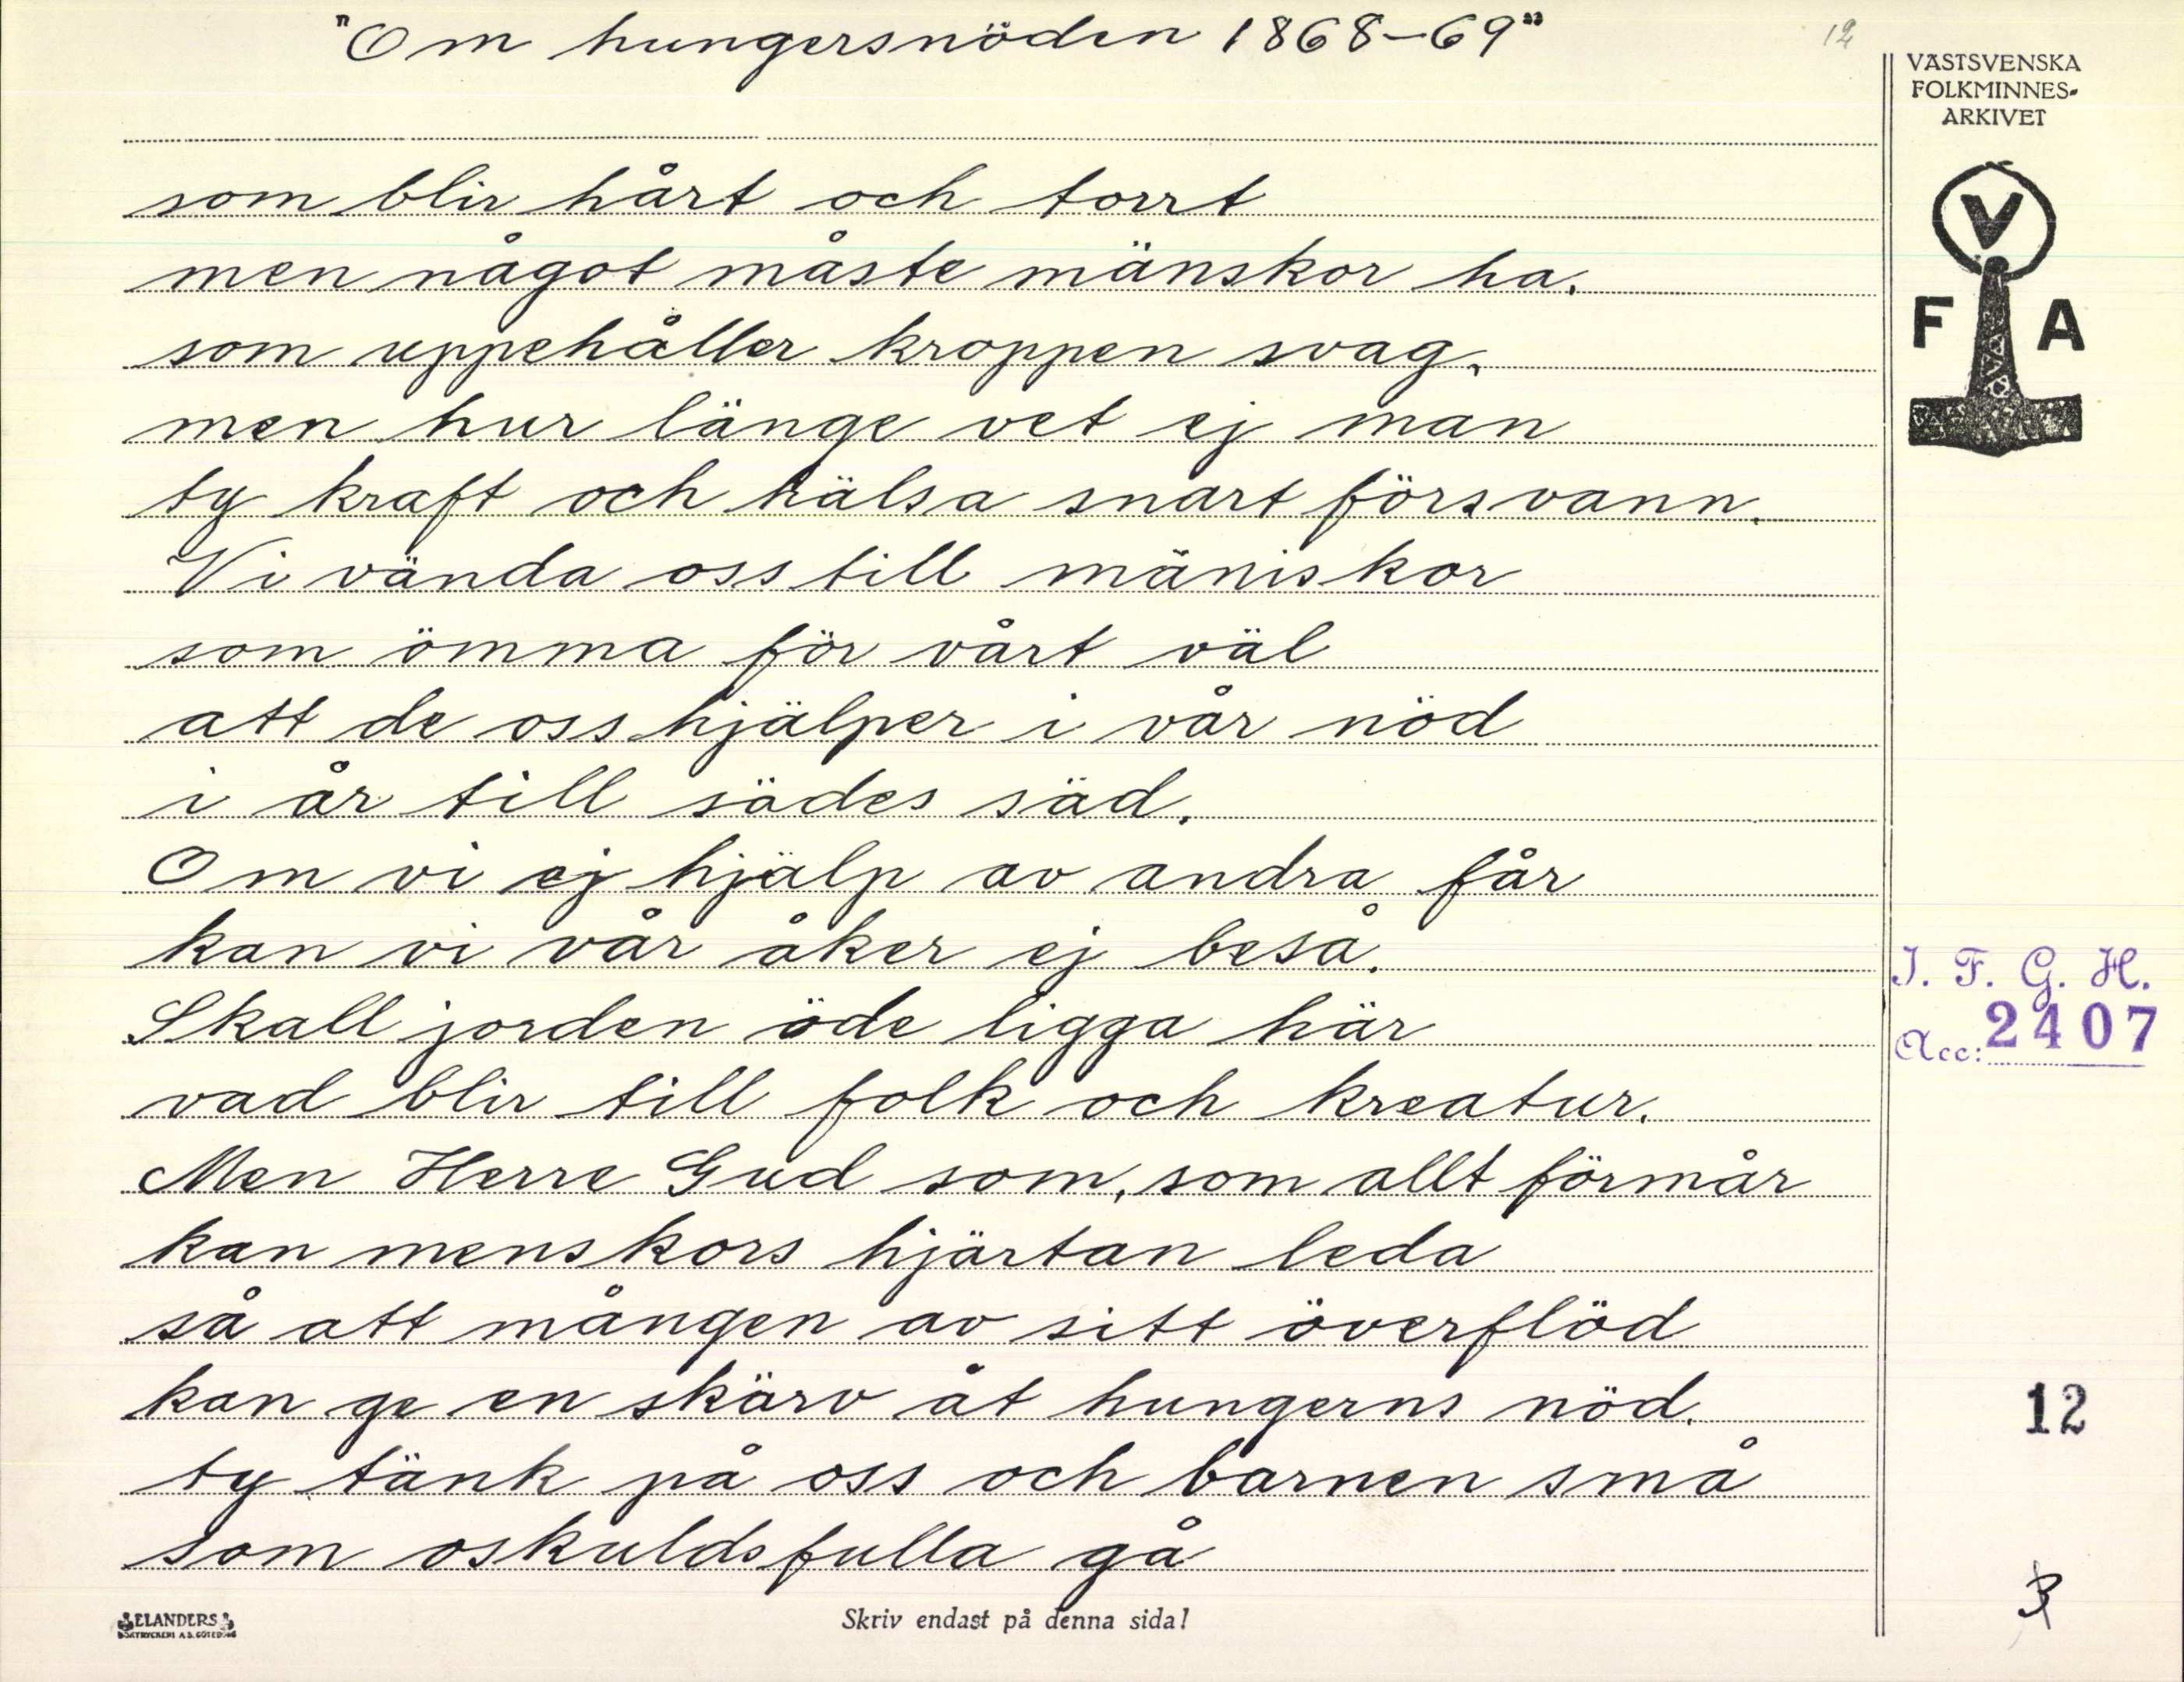 "Om hungersnöden 1868-69"
12
VÄSTSVENSKA
FOLKMINNES-
ARKIVET
V
F A
som blir hårt och torrt
men något måste mänskor ha.
som uppehåller kroppen svag.
men hur länge vet ej man
ty kraft och hälsa snart försvann.
Vi vända oss till mäniskor
som ömma för vårt väl
att de oss hjälper i vår nöd
i år till sädes säd.
Om vi ej hjälp av andra får
kan vi vår åker ej beså.
Skall jorden öde ligga här
vad blir till folk och kreatur.
Men Herre Gud som, som allt förmår
kan menskors hjärtan leda
så att mången av sitt överflöd
kan ge en skärv åt hungerns nöd.
ty tänk på oss och barnen små
som oskuldsfulla gå
I. F. G. H.
Acc: 2407
12
3
ELANDERS
BOKTRYCKERI A.B. GÖTEBORG
Skriv endast på denna sida!